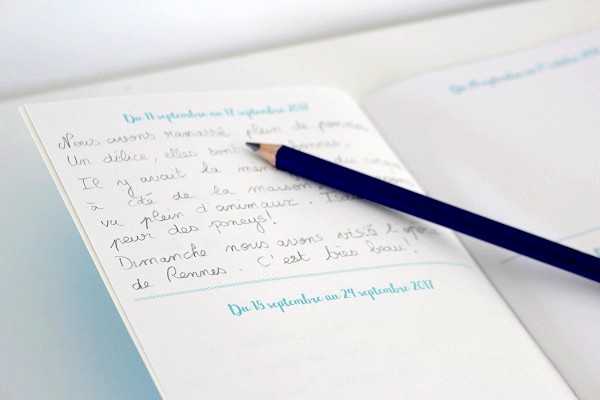 Du 11 septembre au 17 septembre 2017
Nous avons ramassé plein de pommes
Un délice, elles sont bonnes.
Il y avait la du cirque
à côté de la maison
vu plein d'animaux.
peur des poneys!
Dimanche nous avons visité l'opéra
de Rennes. C'est très beau!!
Du 18 septembre au 24 septembre 2017